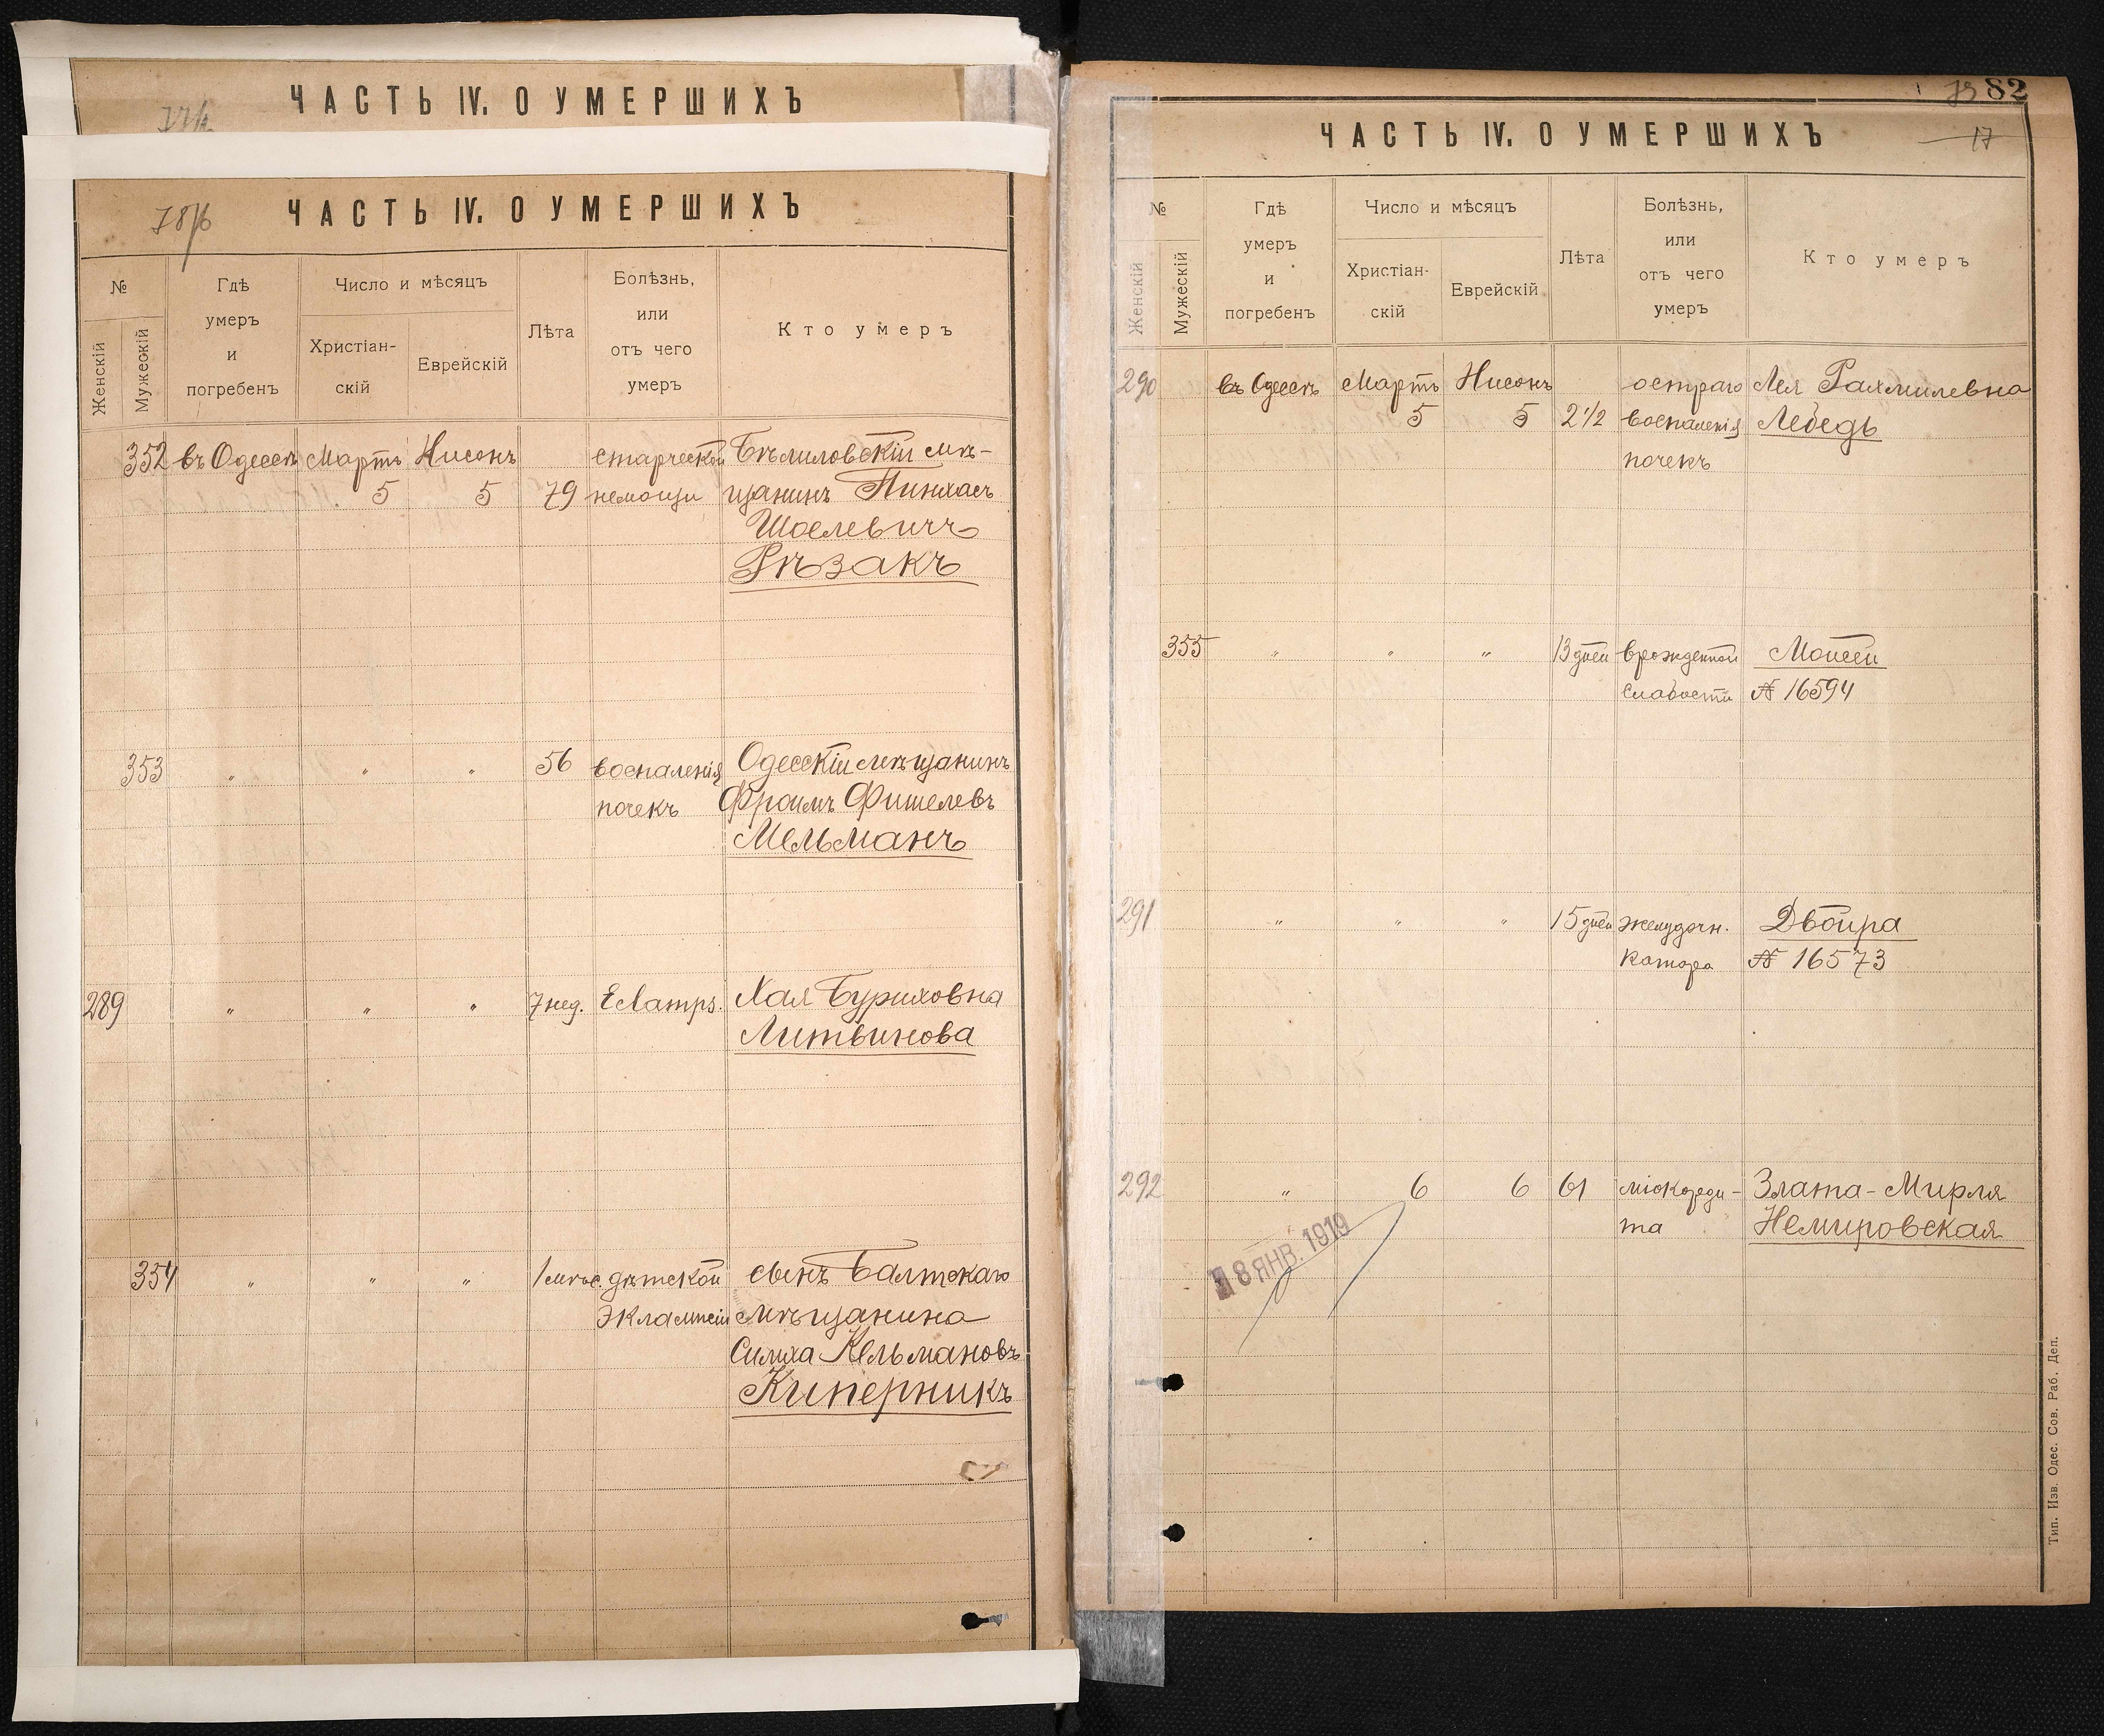 ЧАСТЬ IV. О УМЕРШИХЪ
ЧАСТЬ IV. О УМЕРШИХЪ
№
Женскій
Мужескій
Гдѣ
умеръ
и
погребенъ
Число и мѣсяцъ
Христіан-
скій
Еврейскій
Лѣта
Болѣзнь,
или
отъ чего
умеръ
Кто умеръ
352 въ Одессѣ Мартъ Нисонъ старческой Бѣлиловскій мѣ-
5 5 79 немощи щанинъ Пинхасъ
Шоелевичъ
Рѣзакъ
353 " " " 56 воспаленія Одесскій мѣщанинъ
почекъ Фроимъ Фишелевъ
Мельманъ
289 " " " 7 нед. Eclamps. Хая Буриховна
Литвинова
354 " " " 1 мѣс. дѣтской сынъ Балтскаго
эклампсіи мѣщанина
Симха Кельмановъ
Киперникъ
82
ЧАСТЬ IV. О УМЕРШИХЪ
17
№
Женскій
Мужескій
Гдѣ
умеръ
и
погребенъ
Число и мѣсяцъ
Христіан-
скій
Еврейскій
Лѣта
Болѣзнь,
или
отъ чего
умеръ
Кто умеръ
290 въ Одессѣ Мартъ Нисонъ остраго Лея Рахмилевна
5 5 2 1/2 воспаленія Лебедь
почекъ
355 " " " 13 дней врожденной Мойсей
слабости № 16594
291 " " " 15 дней желудочн. Двойра
катара № 16573
292 " 6 6 61 міокарди- Злата-Мирля
та Немировская
8 ЯНВ. 1919
Тип. Изв. Одес. Сов. Раб. Деп.